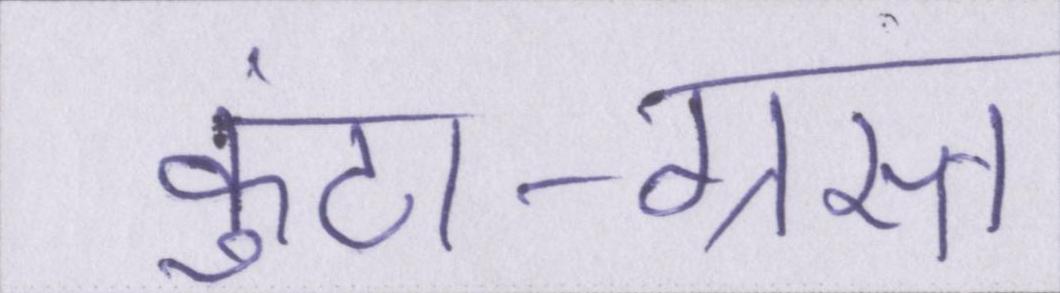 कुंठा-ग्रस्त